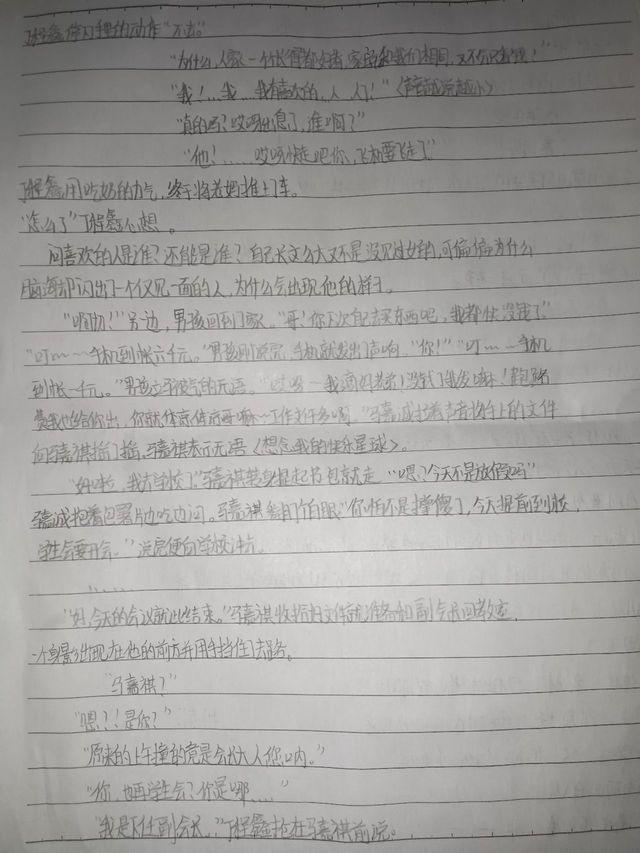 丁程鑫停下手里的动作“不去。”
“为什么，人家一个长得都好看，家庭和我们相同，又不
“我！...我...我有喜欢的，人，人了！”（声音越说越小）
“真的吗？哎呀出息了，谁啊？”
“他！.....哎呀快走吧你，飞机要飞走了”
丁程鑫用吃奶的力气，终于将老妈推上了车。
“怎么了”丁程鑫心想。
问喜欢的人是谁？还能是谁？自己长这么大又不是没见过好的，可偏偏为什么
脑海却闪出了一个仅见一面的人，为什么会出现他的样子。
“啊切！”另一边，男孩回到了家。“哥！你下次自己去买东西吧，我都快没钱了”
“叮~~手机到帐六千元。”男孩刚说完，手机就发出了声响。“你！”“叮~~手机
到帐一千元。”男孩立马被气的无语。“哎呀~我滴好弟弟！没钱了我发嘛！跑路
费我也给你出，你就体谅体谅哥嘛~工作新许多啊。”马嘉诚指着桌台上的文件
向马嘉祺指了指，马嘉祺表示无语〈想念我的快乐星球〉。
“好啦，我去学校了”马嘉祺转身提起书包就走“嗯？今天不是放假吗”
马嘉诚抱着包薯片边吃边问。马嘉祺翻了个白眼“你怕不是撞傻了，今天提前到校，
学生会要开会。”说完便向学校冲去。
“.....
“好，今天的会议就此结束。”马嘉祺收拾好文件就准备和副会长回教室，
一个身影出现在他的前方并用手挡住了去路。
“马嘉祺？”
“嗯？！是你？”
“原来的上午撞的竟是会长大人您呐。”
“你，也再学生会？你是哪.....”
“我是下任副会长。”丁程鑫抢在马嘉祺前说。